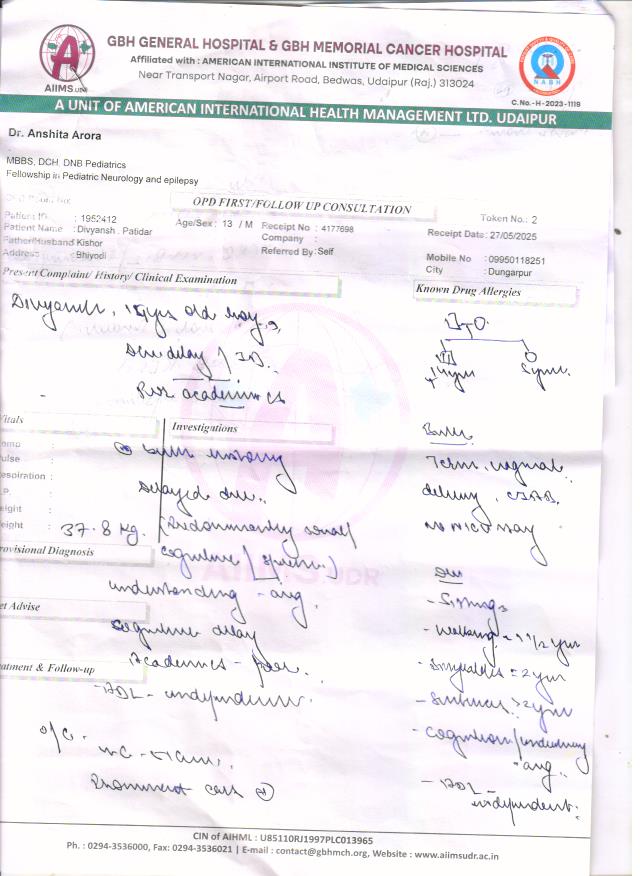 GBH GENERAL HOSPITAL & GBH MEMORIAL CANCER HOSPITAL
Affiliated with : AMERICAN INTERNATIONAL INSTITUTE OF MEDICAL SCIENCES
Near Transport Nagar, Airport Road, Bedwas, Udaipur (Raj.) 313024
AIIMS UDR
NABH
C. No.- H - 2023 - 1119
A UNIT OF AMERICAN INTERNATIONAL HEALTH MANAGEMENT LTD. UDAIPUR
Dr. Anshita Arora
MBBS, DCH, DNB Pediatrics
Fellowship in Pediatric Neurology and epilepsy
OPD FIRST/FOLLOW UP CONSULTATION
Token No.: 2
Patient ID : 1952412
Age/Sex : 13 / M
Receipt No : 4177698
Receipt Date : 27/05/2025
Patient Name : Divyansh . Patidar
Company :
Father/Husband Kishor
Referred By : Self
Mobile No : 09950118251
Address : Bhiyodi
City : Dungarpur
Present Complaint/ History/ Clinical Examination
Known Drug Allergies
Divyansh, old boy
delay / ID
Poor academics
Vitals
Investigations
birth history
Term, vaginal
Delayed
delivery, CIAB.
Weight : 37.8 kg.
[Predominantly social/
no NICU stay
Provisional Diagnosis
cognitive / speech]
understanding - avg.
- Sitting
Diet Advise
- Walking - 1 1/2 yrs
Cognitive delay
Academics - poor
- 2 yrs
Treatment & Follow-up
- ADL - independent
- Sentences > 2 yrs
- Cognition/understanding
avg.
O/E -
- ADL -
independent.
Prominent ears
AIIMS UDR
CIN of AIHML : U85110RJ1997PLC013965
Ph. : 0294-3536000, Fax: 0294-3536021 | E-mail : contact@gbhmch.org, Website : www.aiimsudr.ac.in